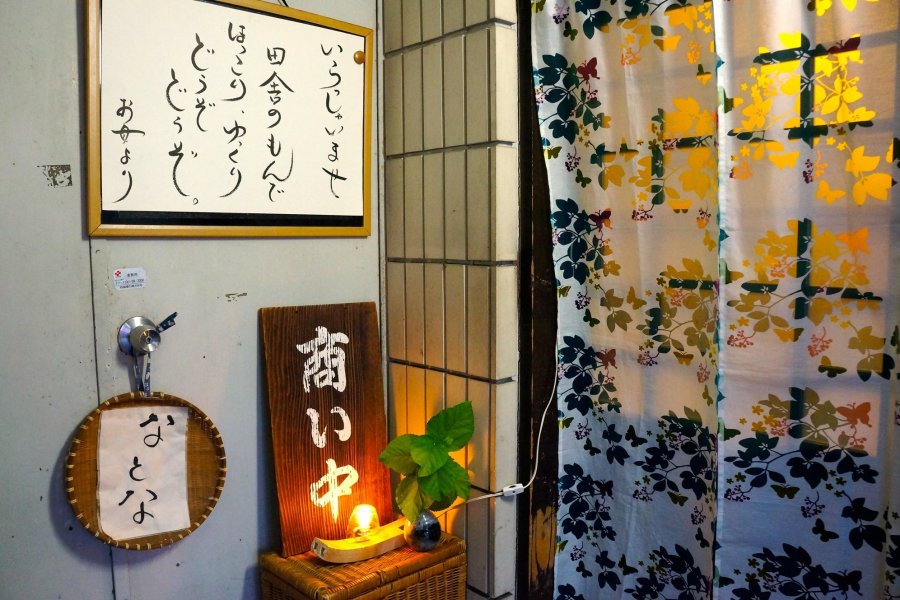 いらっしゃいませ
田舎のもんで
ほっこり、ゆっくり
どうぞ
どうぞ。
お母より
商い中
なとな